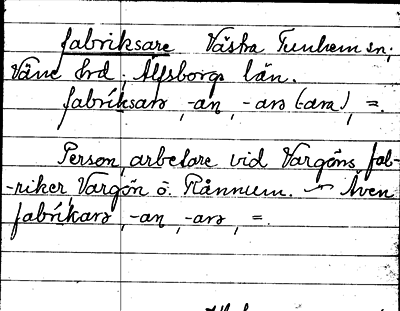 fabriksare Västra Tunhem sn;
Väne hrd, Älfsborgs län.
fabríksarə, -an, -arə (ara), =.
Person, arbetare vid Vargöns fab-
-riker, Vargön o. Rånnum. — Även
fabríkarə, -an, -arə, =.